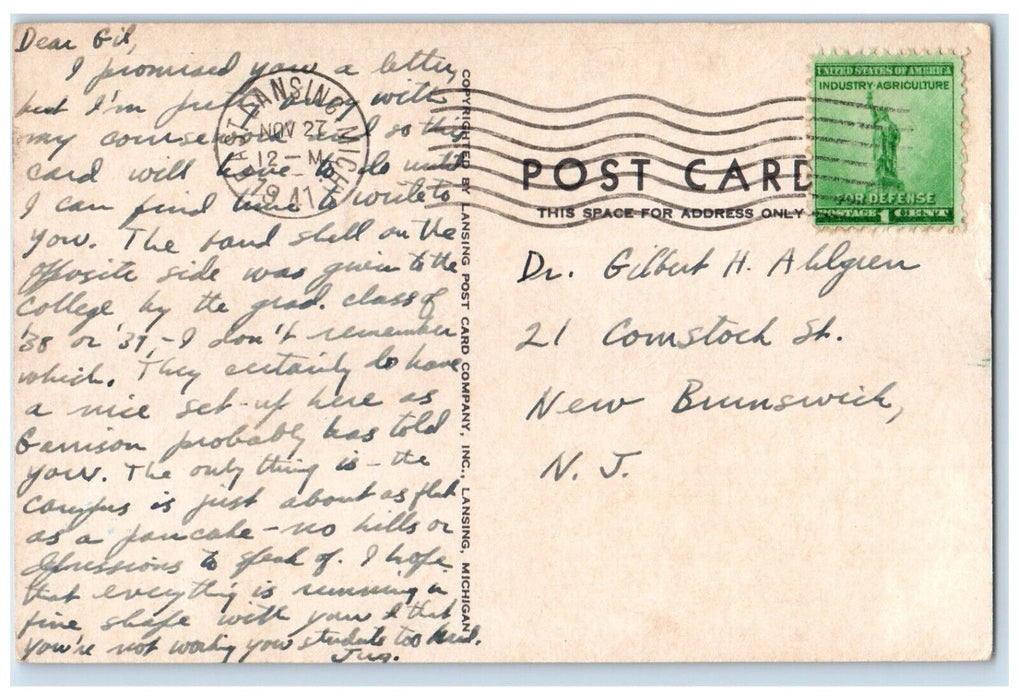 Dear Gil,
I promised you a letter,
but I'm just busy with
my courses and so this
card will have to do until
I can find time to write to
you. The band shell on the
opposite side was given to the
College by the grad. class of
'38 or '39, - I don't remember
which. They certainly do have
a nice set-up here as
Garrison probably has told
you. The only thing is - the
campus is just about as flat
as a pancake - no hills or
depressions to speak of. I hope
that everything is running in
fine shape with you & that
you're not working you students too hard.
EAST LANSING MICH
NOV 27
12 - M
1941
COPYRIGHTED BY LANSING POST CARD COMPANY, INC., LANSING, MICHIGAN
UNITED STATES OF AMERICA
INDUSTRY·AGRICULTURE
FOR DEFENSE
POSTAGE 1 CENT
POST CARD
THIS SPACE FOR ADDRESS ONLY
Dr. Gilbert H. Ahlgren
21 Comstock St.
New Brunswick,
N. J.